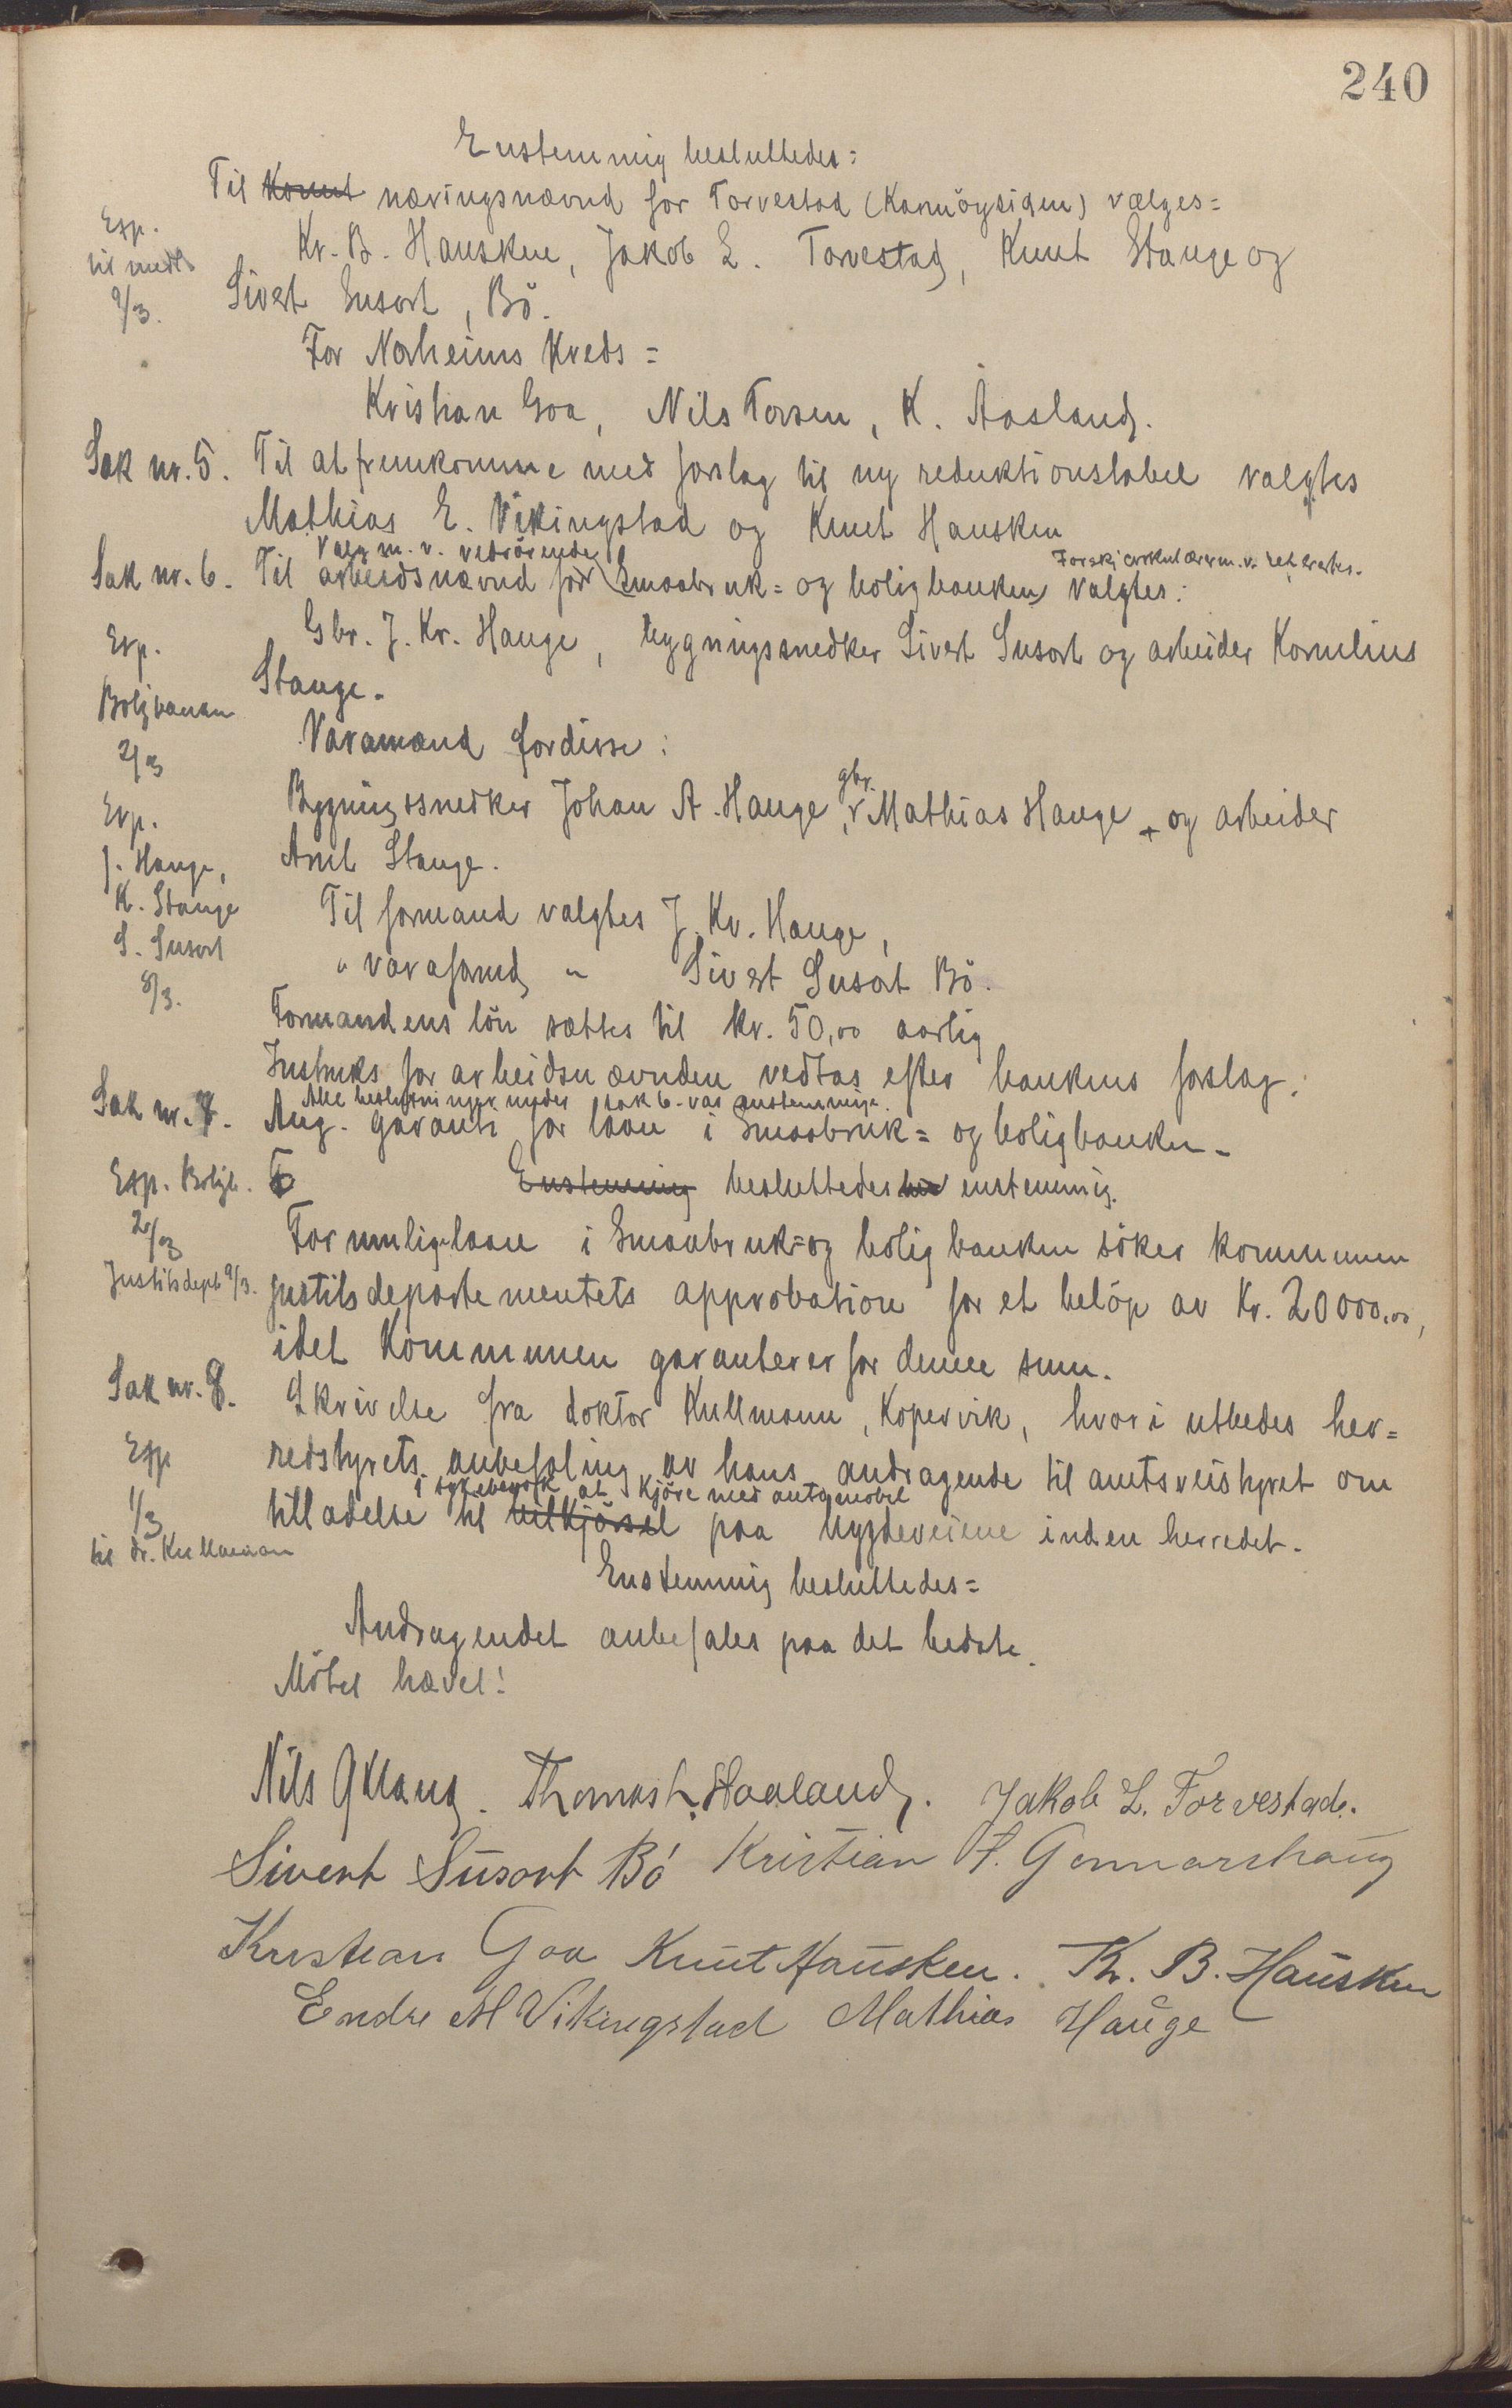 240
Enstemmig besluttedes:
Til Komt næringsnævnd for Torvestad (Karmöysiden) vælges=
Exp.
til medl.
9/3.
Kr. B. Hausken, Jakob L. Torvestad, Knut Stange og
Sivert Susort, Bö.
For Norheims Kreds =
Kristian Goa, Nils Torsen, K. Aasland.
Sak nr. 5. Til at fremkomme med forslag til ny reduktionstabel valgtes
Mathias E. Vikingstad og Knut Hausken
Valg m. v. vedrörende
Forskj. cirkulærer m. v. refereertes.
Sak nr. 6. Til arbeidsnævnd for Smaabruk= og boligbanken valgtes:
Exp.
Boligbanken
2/3
Gbr. J. Kr. Hauge, bygningssnedker Sivert Susort og arbeider Kornelius
Stange.
Varamænd for disse:
gbr.
Bygningssnedker Johan A. Hauge, Mathias Hauge, og arbeider
Exp.
J. Hauge,
K. Stange
S. Susort
8/3.
Amt Stange.
Til formand valgtes J. Kr. Hauge,
" varaformd " Sivert Susort Bö.
Formandens lön sættes til kr. 50,00 aarlig
Instruks for arbeidsnævnden vedtas efter bankens forslag.
Alle beslutninger under sak 6 var enstemmige.
Sak nr. 7. Ang. garanti for laan i Smaabruk= og boligbanken.
Exp. Boligb.
2/3
Justitsdept 9/3.
Enstemmig besluttedes enstemmig.
For mulige laan i Smaabruk= og boligbanken söker kommunen
justitsdepartementets approbation for et belöp av Kr. 20000.00,
idet Kommunen garanterer for denne sum.
Sak nr. 8. Skrivelse fra doktor Kullmann, Kopervik, hvori utbedes her=
Exp
1/3
til dr. Kullmann
redstyrets anbefaling av hans andragende til amtsveistyret om
i sykebesök at kjöre med automobil
tilladelse til bilkjörsel paa bygdeveiene inden herredet.
Enstemmig besluttedes=
Andragendet anbefales paa det bedste.
Mötet hævet!
Nils Thomas L. Haaland. Jakob L. Torvestad.
Sivert Susort Bö Kristian F. Gunnarshaug
Kristian Goa Knut Hausken. Kr. B. Hausken
Endre M Vikingstad Mathias Hauge